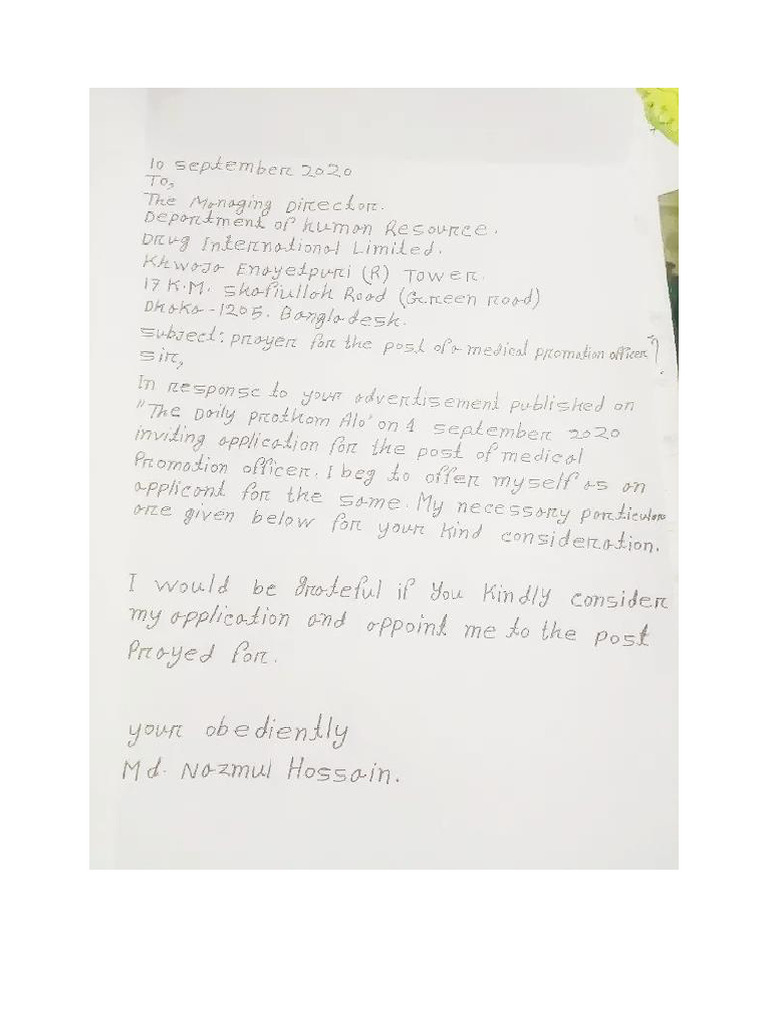 10 September 2020
To,
The Managing Director.
Department of human Resource.
Drug International Limited.
Khwaja Enayetpuri (R) Tower.
17 K.M. Shafiullah Road (Green road)
Dhaka-1205. Bangladesh.
Subject: prayer for the post of a medical promation officer"?
Sir,
In response to your advertisement published on
"The Daily prothom Alo" on 1 september 2020
inviting application for the post of medical
Promation officer. I beg to offer myself as an
applicant for the same. My necessary particulars
are given below for your kind consideration.
I would be grateful if you kindly consider
my application and appoint me to the post
Prayed for.
your obediently
Md. Nazmul Hossain.